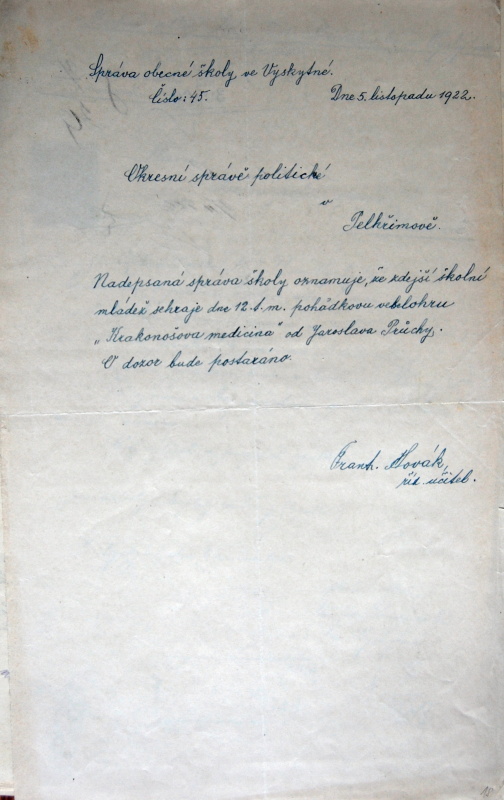 Správa obecné školy ve Vyskytné.
Číslo: 45. Dne 5. listopadu 1922.
Okresní správě politické
v
Pelhřimově.
Nadepsaná správa školy oznamuje, že zdejší školní
mládež sehraje dne 12. t. m. pohádkovou veselohru
„Krakonošova medicina" od Jaroslava Průchy.
O dozor bude postaráno.
Frant. Novák,
říd. učitel.